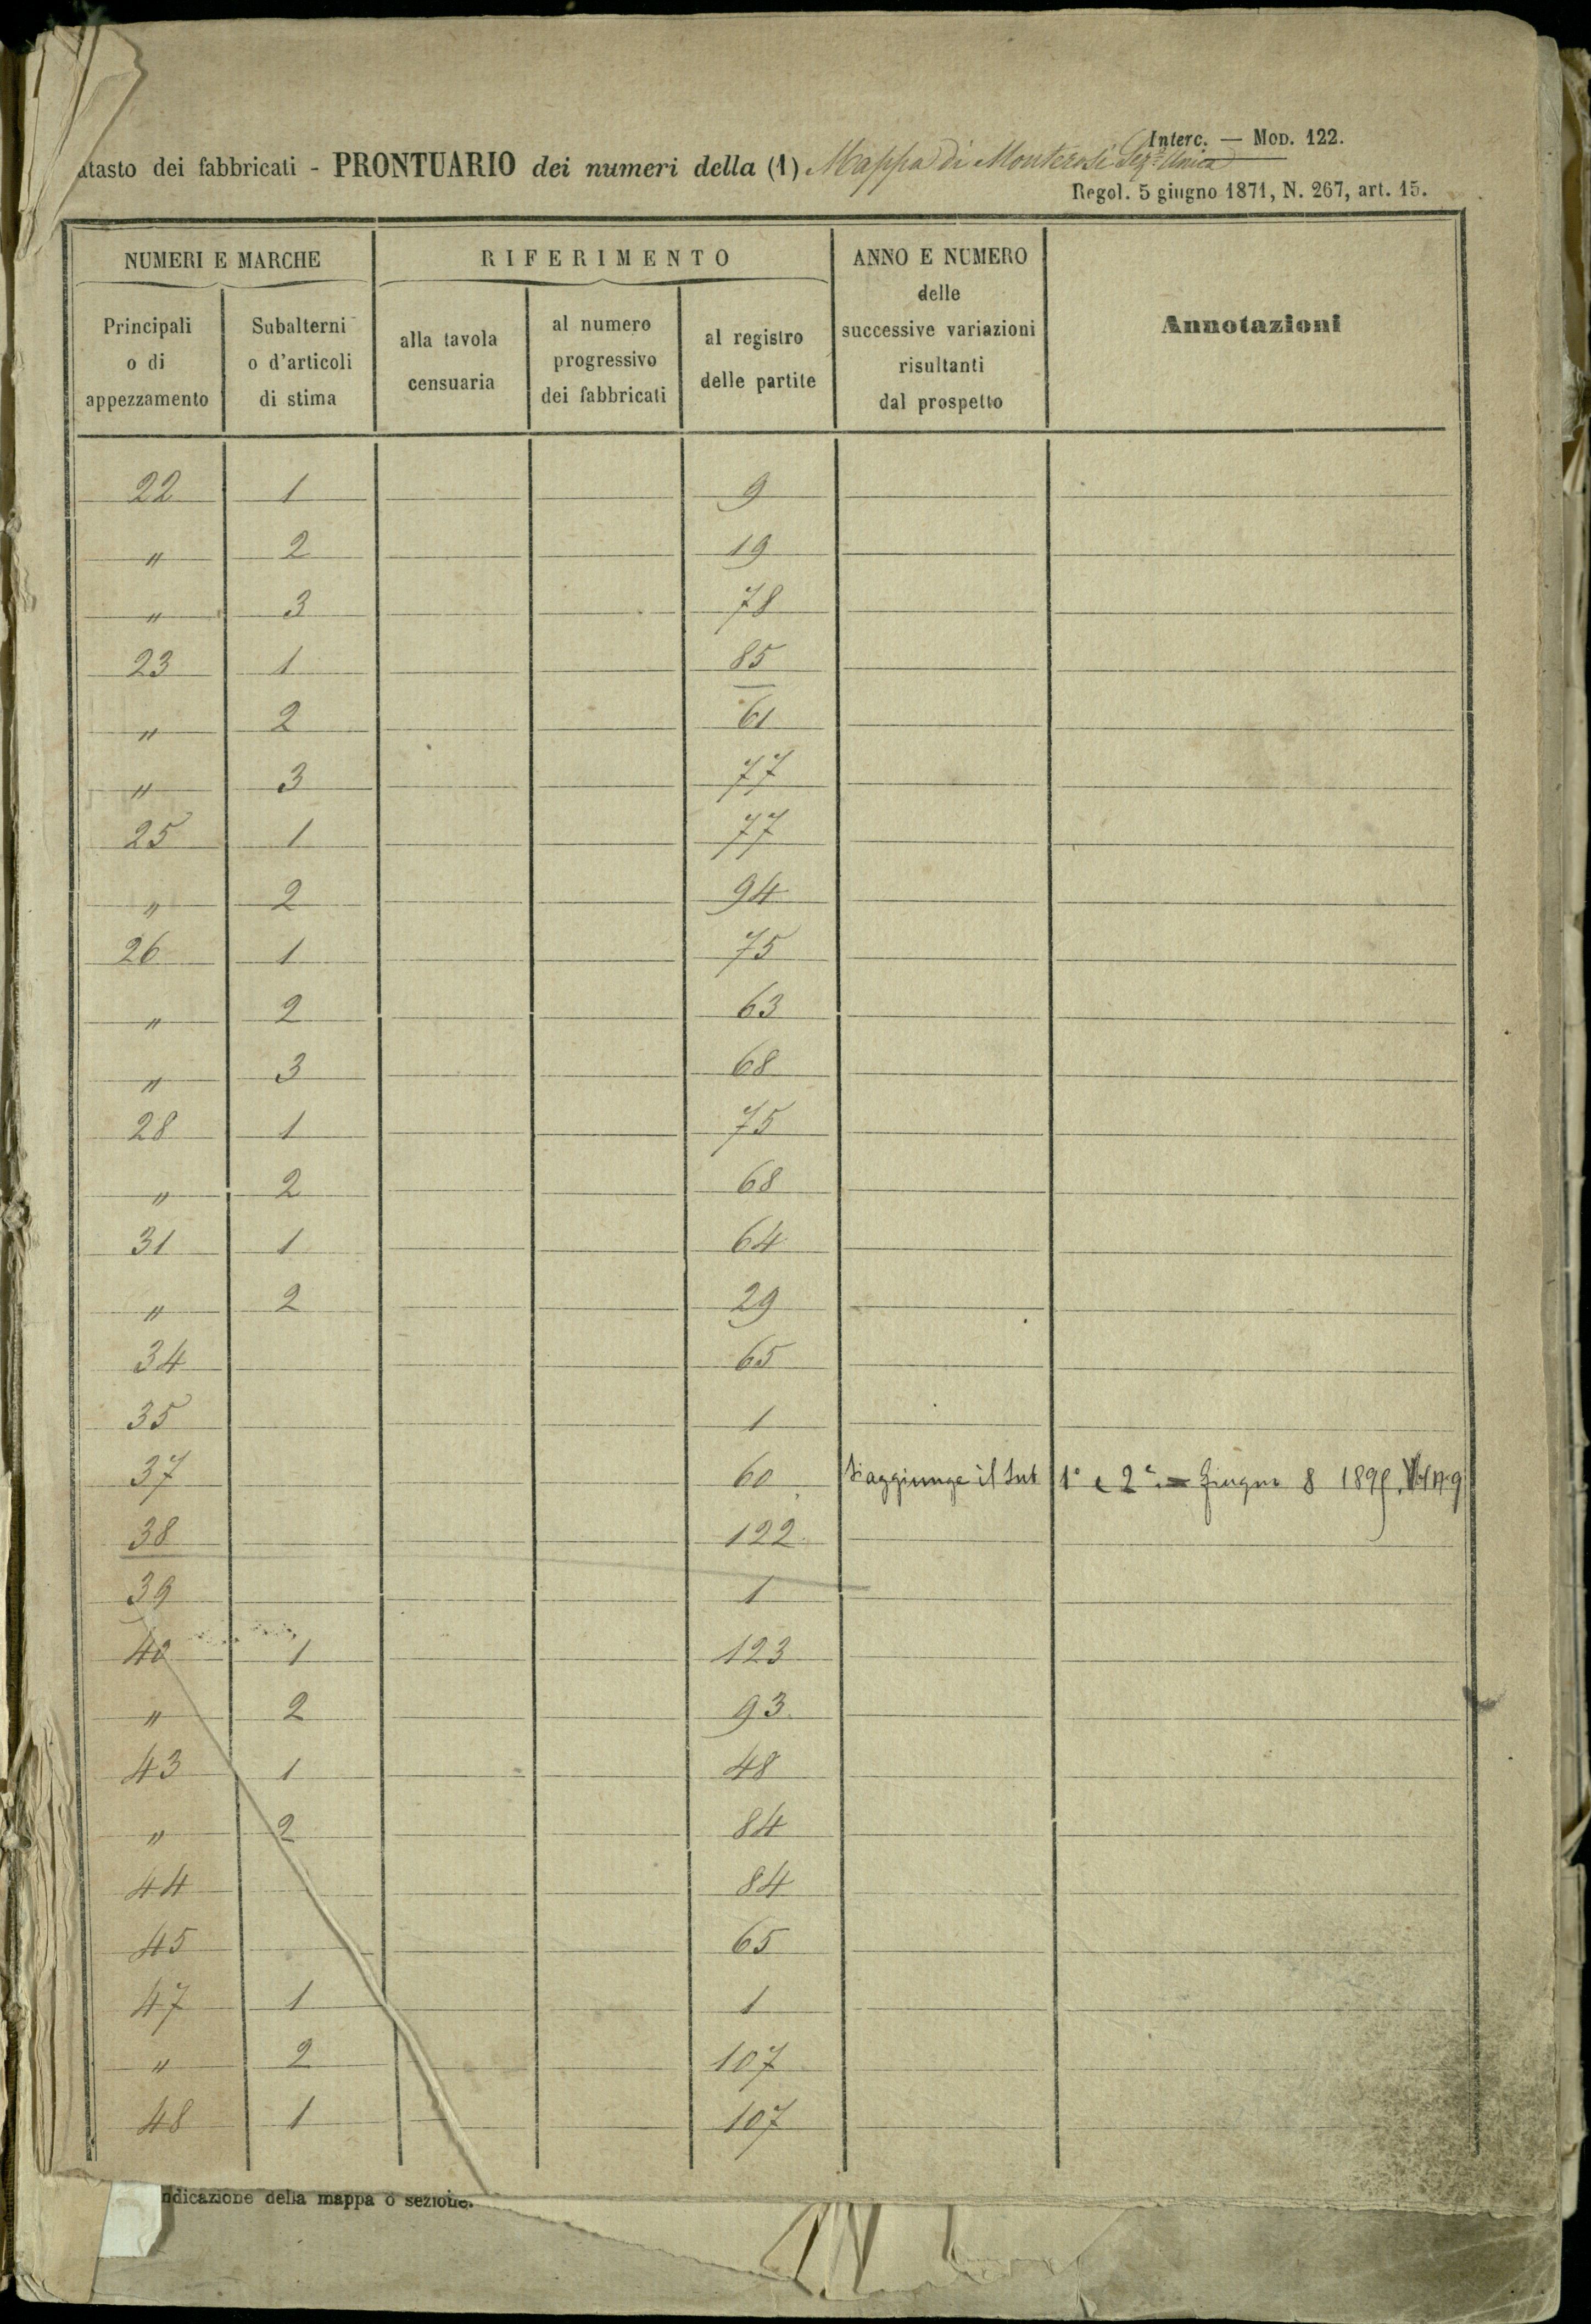 Interc. — MOD. 122.
atasto dei fabbricati - PRONTUARIO dei numeri della (1) Mappa di Monterosi Sez.e Unica
Regol. 5 giugno 1871, N. 267, art. 15.
NUMERI E MARCHE RIFERIMENTO ANNO E NUMERO delle successive variazioni risultanti dal prospetto Annotazioni
Principali o di appezzamento Subalterni o d'articoli di stima alla tavola censuaria al numero progressivo dei fabbricati al registro delle partite
22 1 9
" 2 19
" 3 78
23 1 85
" 2 61
" 3 77
25 1 77
" 2 94
26 1 75
" 2 63
" 3 68
28 1 75
" 2 68
31 1 64
" 2 29
34 65
35 1
37 60 Si aggiunge il Sub 1° e 2° = Giugno 8
38 122
39 1
40 1 123
" 2 93
43 1 48
" 2 84
44 84
45 65
47 1 1
" 2 107
48 1 107
ndicazione della mappa o sezione.